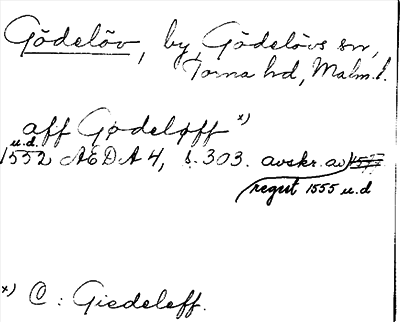 Gödelöv, by, Gödelövs sn,
Torna hd, Malm. l.
aff Gødeløff x)
u.d.
1552 AEDA 4, s. 303. avskr. av
regist 1555 u.d
x) O: Giedeleff.